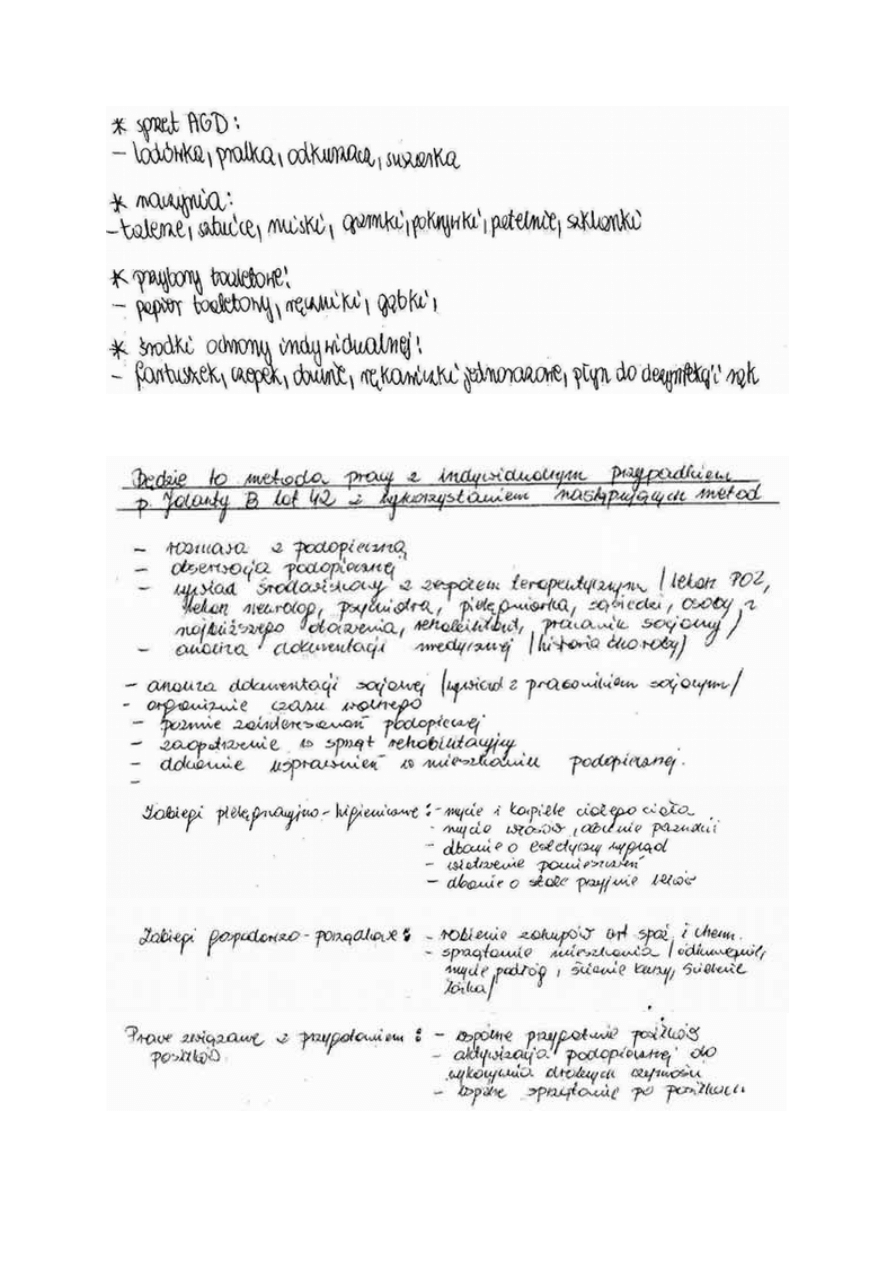 * sprzęt AGD:
- lodówka, pralka, odkurzacz, suszarka
* naczynia:
- talerze, sztućce, miski, garnki, pokrywki, patelnie, szklanki
* przybory toaletowe:
- papier toaletowy, ręczniki, gąbki,
* środki ochrony indywidualnej:
- fartuszek, czepek, obuwie, rękawiczki jednorazowe, płyn do dezynfekcji rąk
Będzie to metoda pracy z indywidualnym przypadkiem
p. Jolanty B lat 42 z wykorzystaniem następujących metod
- rozmowa z podopieczną
- obserwacja podopiecznej
- wywiad środowiskowy z zespołem terapeutycznym /lekarz POZ,
lekarz neurolog, psychiatra, pielęgniarka, sąsiedzi, osoby z
najbliższego otoczenia, rehabilitant, pracownik socjalny/
- analiza dokumentacji medycznej /historia choroby/
- analiza dokumentacji socjalnej /wywiad z pracownikiem socjalnym/
- organizanie czasu wolnego
- poznanie zainteresowań podopiecznej
- zaopatrzenie w sprzęt rehabilitacyjny
- dokonanie usprawnień w mieszkaniu podopiecznej.
-
Zabiegi pielęgnacyjno-higieniczne: - mycie i kąpiele całego ciała
- mycie włosów, obcinanie paznokci
- dbanie o estetyczny wygląd
- wietrzenie pomieszczeń
- dbanie o stałe przyjmowanie leków
Zabiegi gospodarczo-porządkowe: - robienie zakupów art spoż, i chem.
- sprzątanie mieszkania /odkurzanie,
mycie podłóg, ścieranie kurzy, ścielenie
łóżka/
Prace związane z przygotowaniem : - wspólne przygotowanie posiłków
posiłków - aktywizacja podopiecznej do
wykonywania drobnych czynności
- wspólne sprzątanie po posiłkach